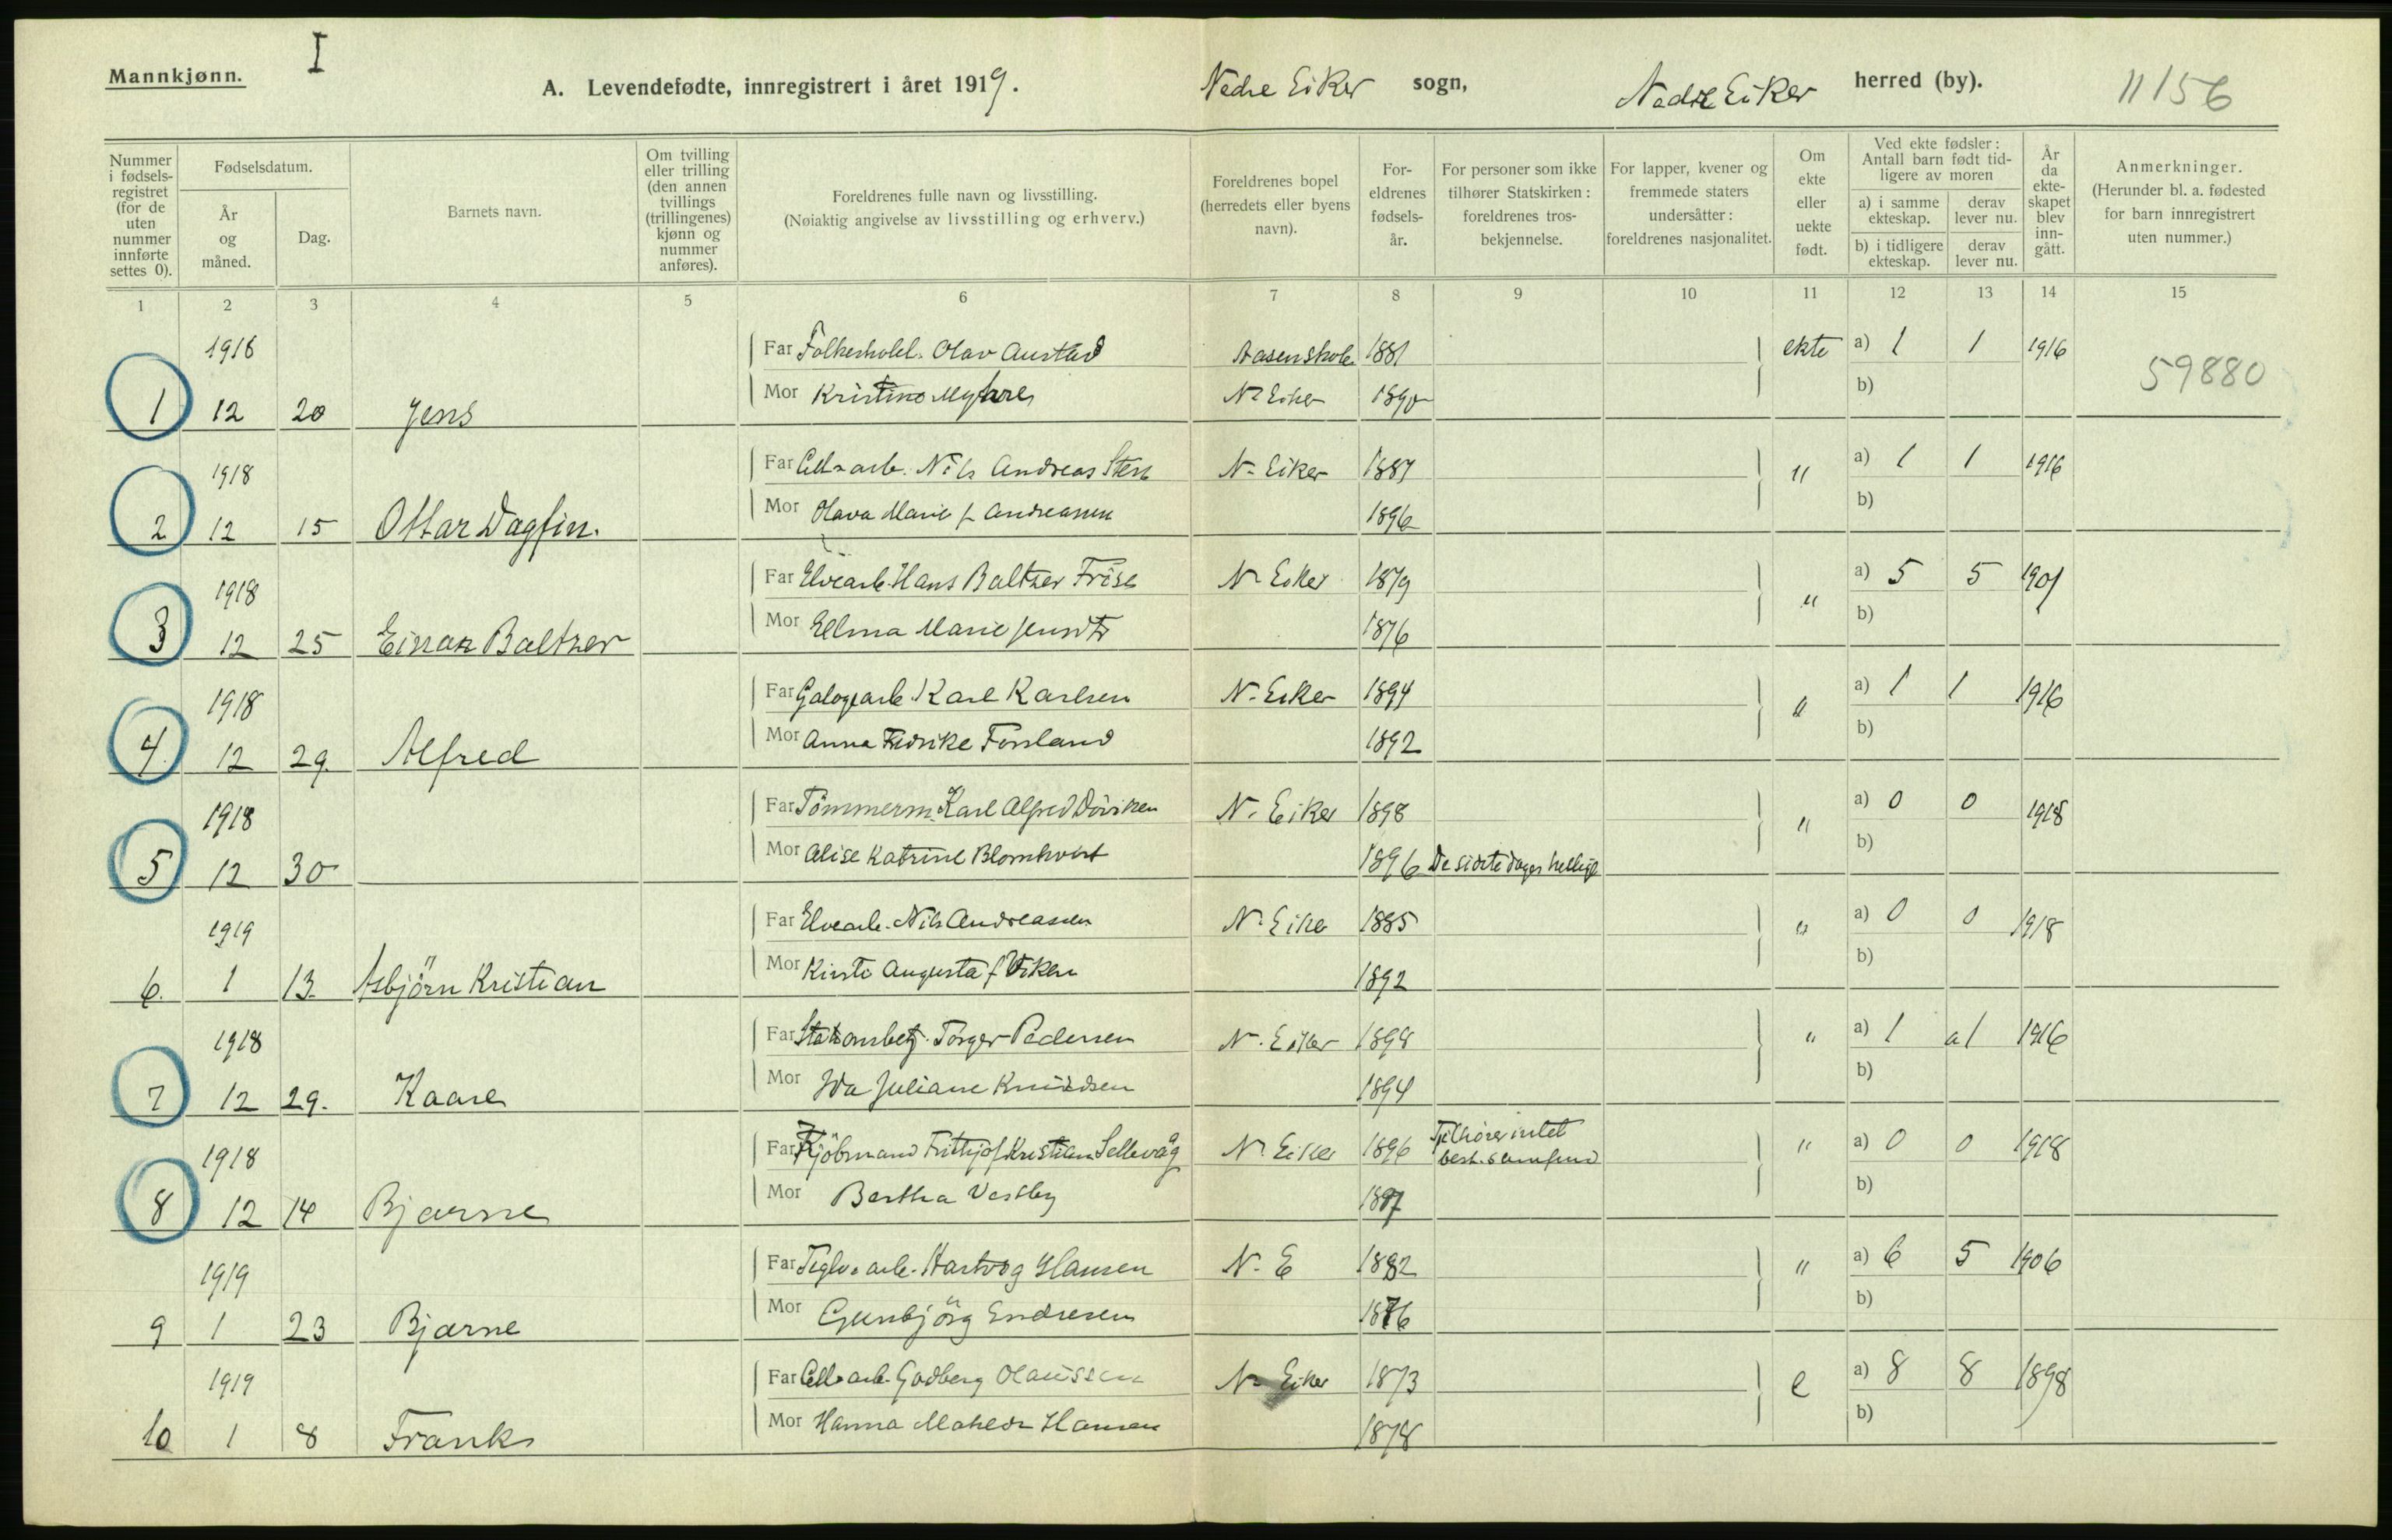 Mannkjønn.
I
A. Levendefødte, innregistrert i året 1919.
Nedre Eiker sogn,
Nedre Eiker herred (by).
11156
Nummer i fødsels-registret (for de uten nummer innførte settes 0).
Fødselsdatum.
År og måned.
Dag.
Barnets navn.
Om tvilling eller trilling (den annen tvillings (trillingenes) kjønn og nummer anføres).
Foreldrenes fulle navn og livsstilling.
(Nøiaktig angivelse av livsstilling og erhverv.)
Foreldrenes bopel (herredets eller byens navn).
For-eldrenes fødsels-år.
For personer som ikke tilhører Statskirken: foreldrenes tros-bekjennelse.
For lapper, kvener og fremmede staters undersåtter: foreldrenes nasjonalitet.
Om ekte eller uekte født.
Ved ekte fødsler: Antall barn født tid-ligere av moren
a) i samme ekteskap.
derav lever nu.
b) i tidligere ekteskap.
derav lever nu.
År da ekte-skapet blev inn-gått.
Anmerkninger.
(Herunder bl. a. fødested for barn innregistrert uten nummer.)
1 2 3 4 5 6 7 8 9 10 11 12 13 14 15
1918 Far Olav Austad Aasenskole 1881 ekte a) 1 1 1916
59880
Mor Kristine Myhre N. Eiker 1890 b)
1 12 20 Jens
1918 Far Cell. arb. Nils Andreas Sten N. Eiker 1887 " a) 1 1 1916
Mor Olava Marie f. Andreassen 1896 b)
2 12 15 Ottar Dagfin.
1918 Far Elvearb. Hans Baltzer N. Eiker 1879 " a) 5 5 1901
Mor Ellma Marie 1876 b)
3 12 25 Einar Baltzer
1918 Far Karl Karlsen N. Eiker 1894 " a) 1 1 1916
Mor Anna Fredrike Fossland 1892 b)
4 12 29. Alfred
1918 Far Tömmerm. Karl Alfred N. Eiker 1898 " a) 0 0 1918
Mor Alise Katrine Blomkvist 1896 De sidste dages hellige b)
5 12 30
1919 Far Elvearb. Nils Andreassen N. Eiker 1885 " a) 0 0 1918
Mor Kirsti Augusta f. Viken 1892 b)
6. 1 13. Asbjörn Kristian
1918 Far Torger Pedersen N. Eiker 1898 " a) 1 a1 1916
Mor Ida Juliane Knudsen 1894 b)
7 12 29. Kaare
1918 Far Kjöbmand Frithjof Kristian Sellevåg N. Eiker 1896 Tilhører intet best. samfund " a) 0 0 1918
Mor Bertha Vestby 1897 b)
8 12 14 Bjarne
1919 Far Teglv. arb. Hartvig Hansen N. E 1882 " a) 6 5 1906
Mor Gunbjörg Endresen 1876 b)
9 1 23 Bjarne
1919 Far Cell. arb. Godberg Olaussen N. Eiker 1873 e a) 8 8 1898
Mor Hanna Hansen 1878 b)
10 1 8 Frank